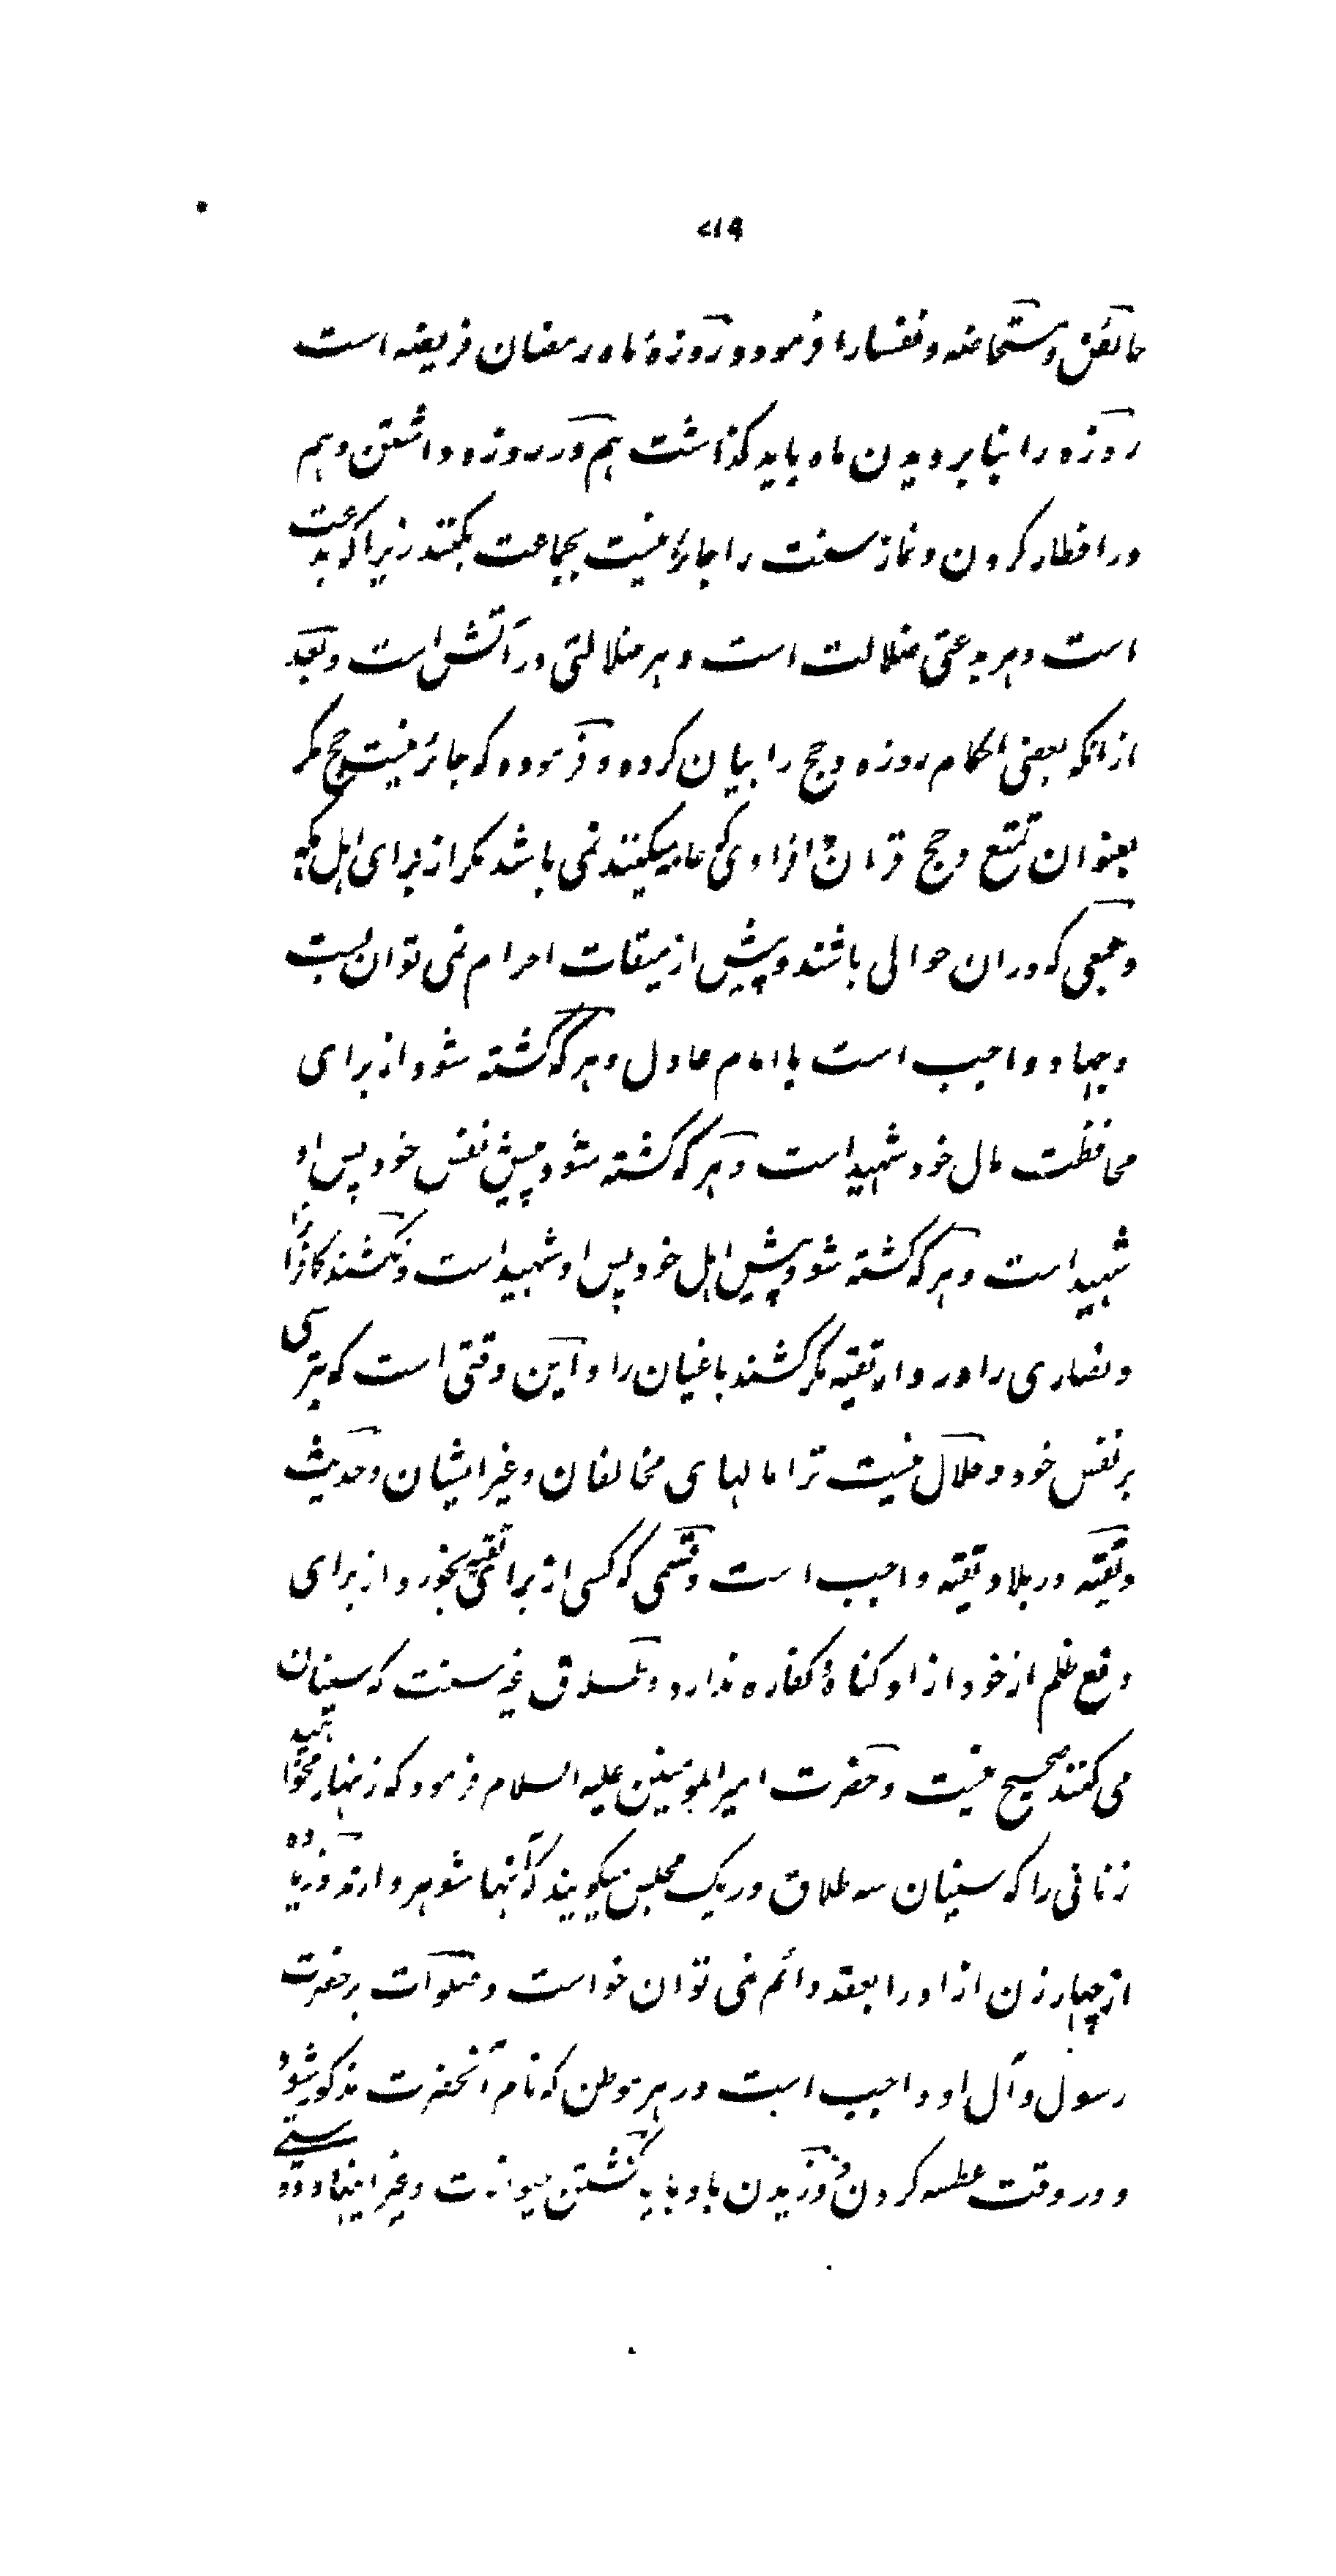 ۷۱۹
حائض و مستحاضه و نفسا را فرموده و روزهٔ ماه رمضان فریضه است
روزه را بنا بر دیدن ماه باید گذاشت هم در روزه داشتن و هم
در افطار کردن و نماز سنت را جائز نیست بجماعت بکنند زیرا که بدعت
است و هر بدعتی ضلالت است و هر ضلالتی در آتش است و بعد
از انکه بعضی احکام روزه و حج را بیان کرده و فرموده که جائز نیست حج مگر
بعنوان تمتع و حج قران و افرادی که عامه میکنند نمی باشد مگر از برای اهل مکه
و جمعی که در ان حوالی باشند و پیش از میقات احرام نمی توان بست
و جهاد واجب است با امام عادل و هر که کشته شود از برای
محافظت مال خود شهید است و هر که کشته شود پیش نفس خود پس او
شهید است و هر که کشته شود پیش اهل خود پس او شهید است و نکشند کافران
و نصاری را در دار تقیه مگر کشند باغیان را و این وقتی است که بترسی
بر نفس خود و حلال نیست ترا مالهای مخالفان و غیر ایشان و حدیث
و تقیه در بلاد تقیه واجب است و قسمی که کسی از برای تقیه بخورد و از برای
دفع ظلم از خود از او گناه و کفاره ندارد و طلاق غیر سنت که سنیان
می کنند صحیح نیست و حضرت امیر المومنین علیه السلام فرمود که زنهار مخواهید
زنانی را که سنیان سه طلاق در یک مجلس میگویند که آنها شوهر دارند و زیاده
از چهار زن ازاد را بعقد دائم نمی توان خواست و صلوات بر حضرت
رسول و آل او واجب است در هر موطن که نام آنحضرت مذکور شود
و در وقت عطسه کردن و وزیدن باد و باید کشتن حیوانات و غیر اینها و دوستی